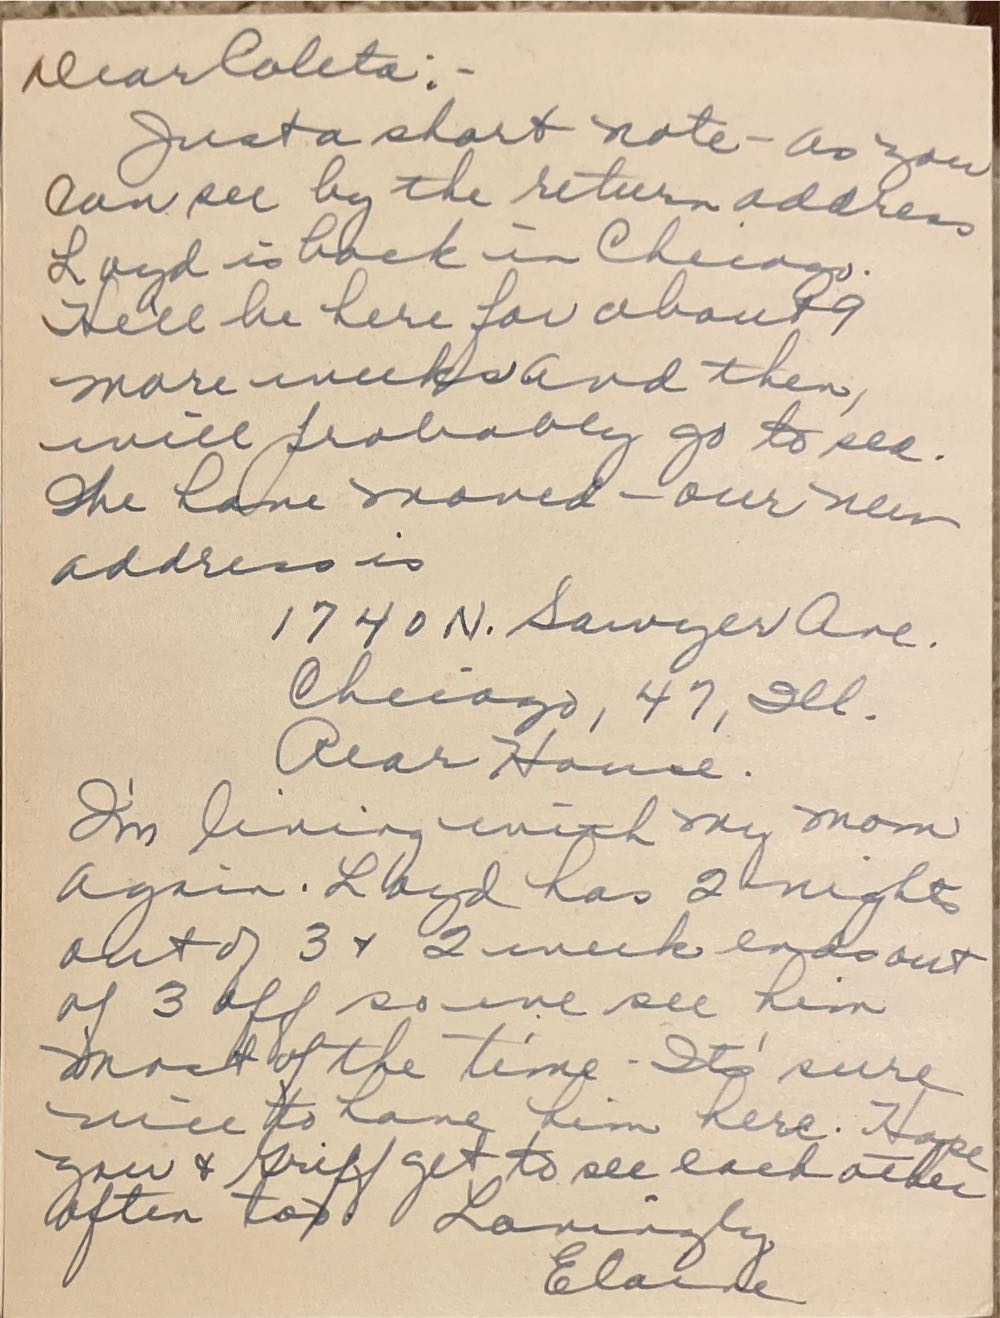 Dear Coleta:-
Just a short note - as you
can see by the return address
Loyd is back in Chicago.
He'll be here for about 9
more weeks and then,
will probably go to sea.
We have moved - our new
address is
1740 N. Sawyer Ave.
Chicago, 47, Ill.
Rear House.
I'm living with my mom
again. Loyd has 2 nights
out of 3 & 2 week ends out
of 3 off so we see him
most of the time - It's sure
nice to have him here. Hope
you & Griff get to see each other
often too. Lovingly,
Elaine